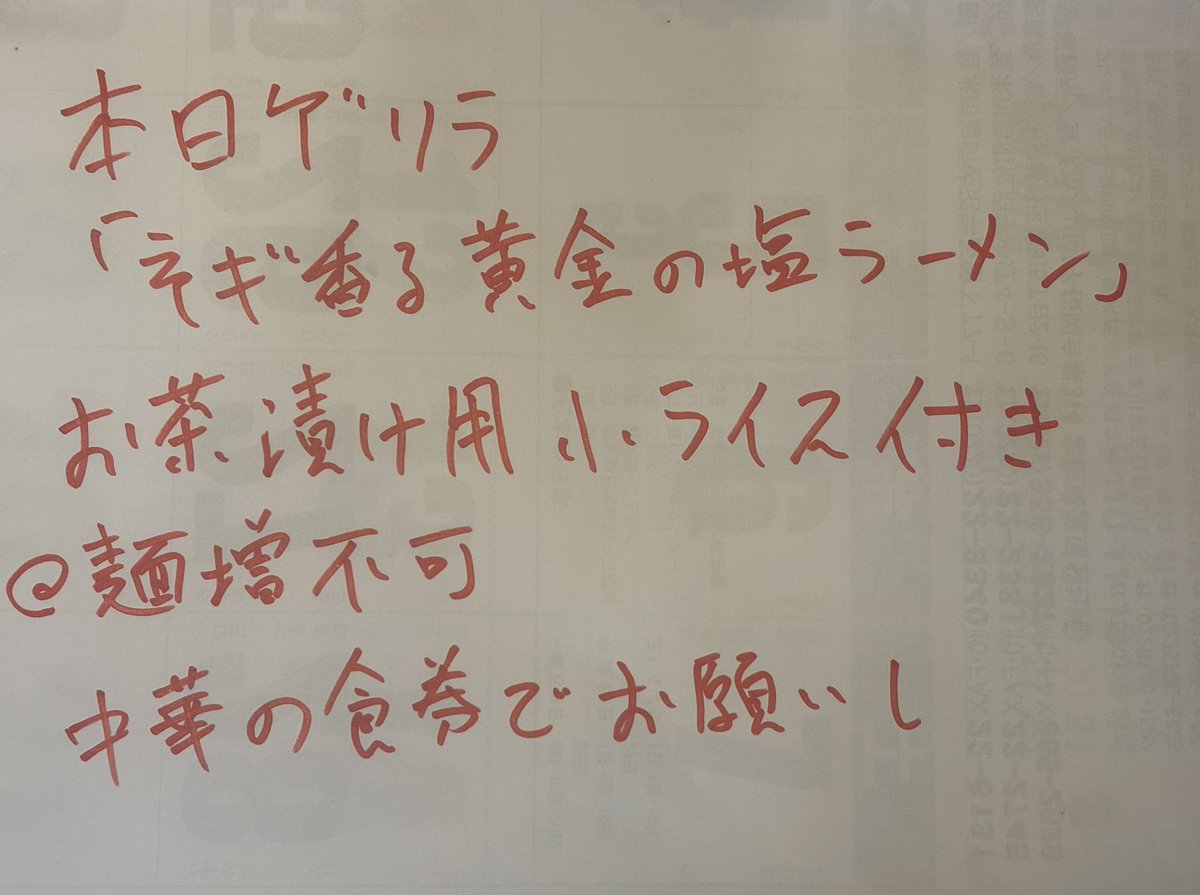 本日ゲリラ
「ネギ香る黄金の塩ラーメン」
お茶漬け用小ライス付き
@麺増不可
中華の食券でお願いし